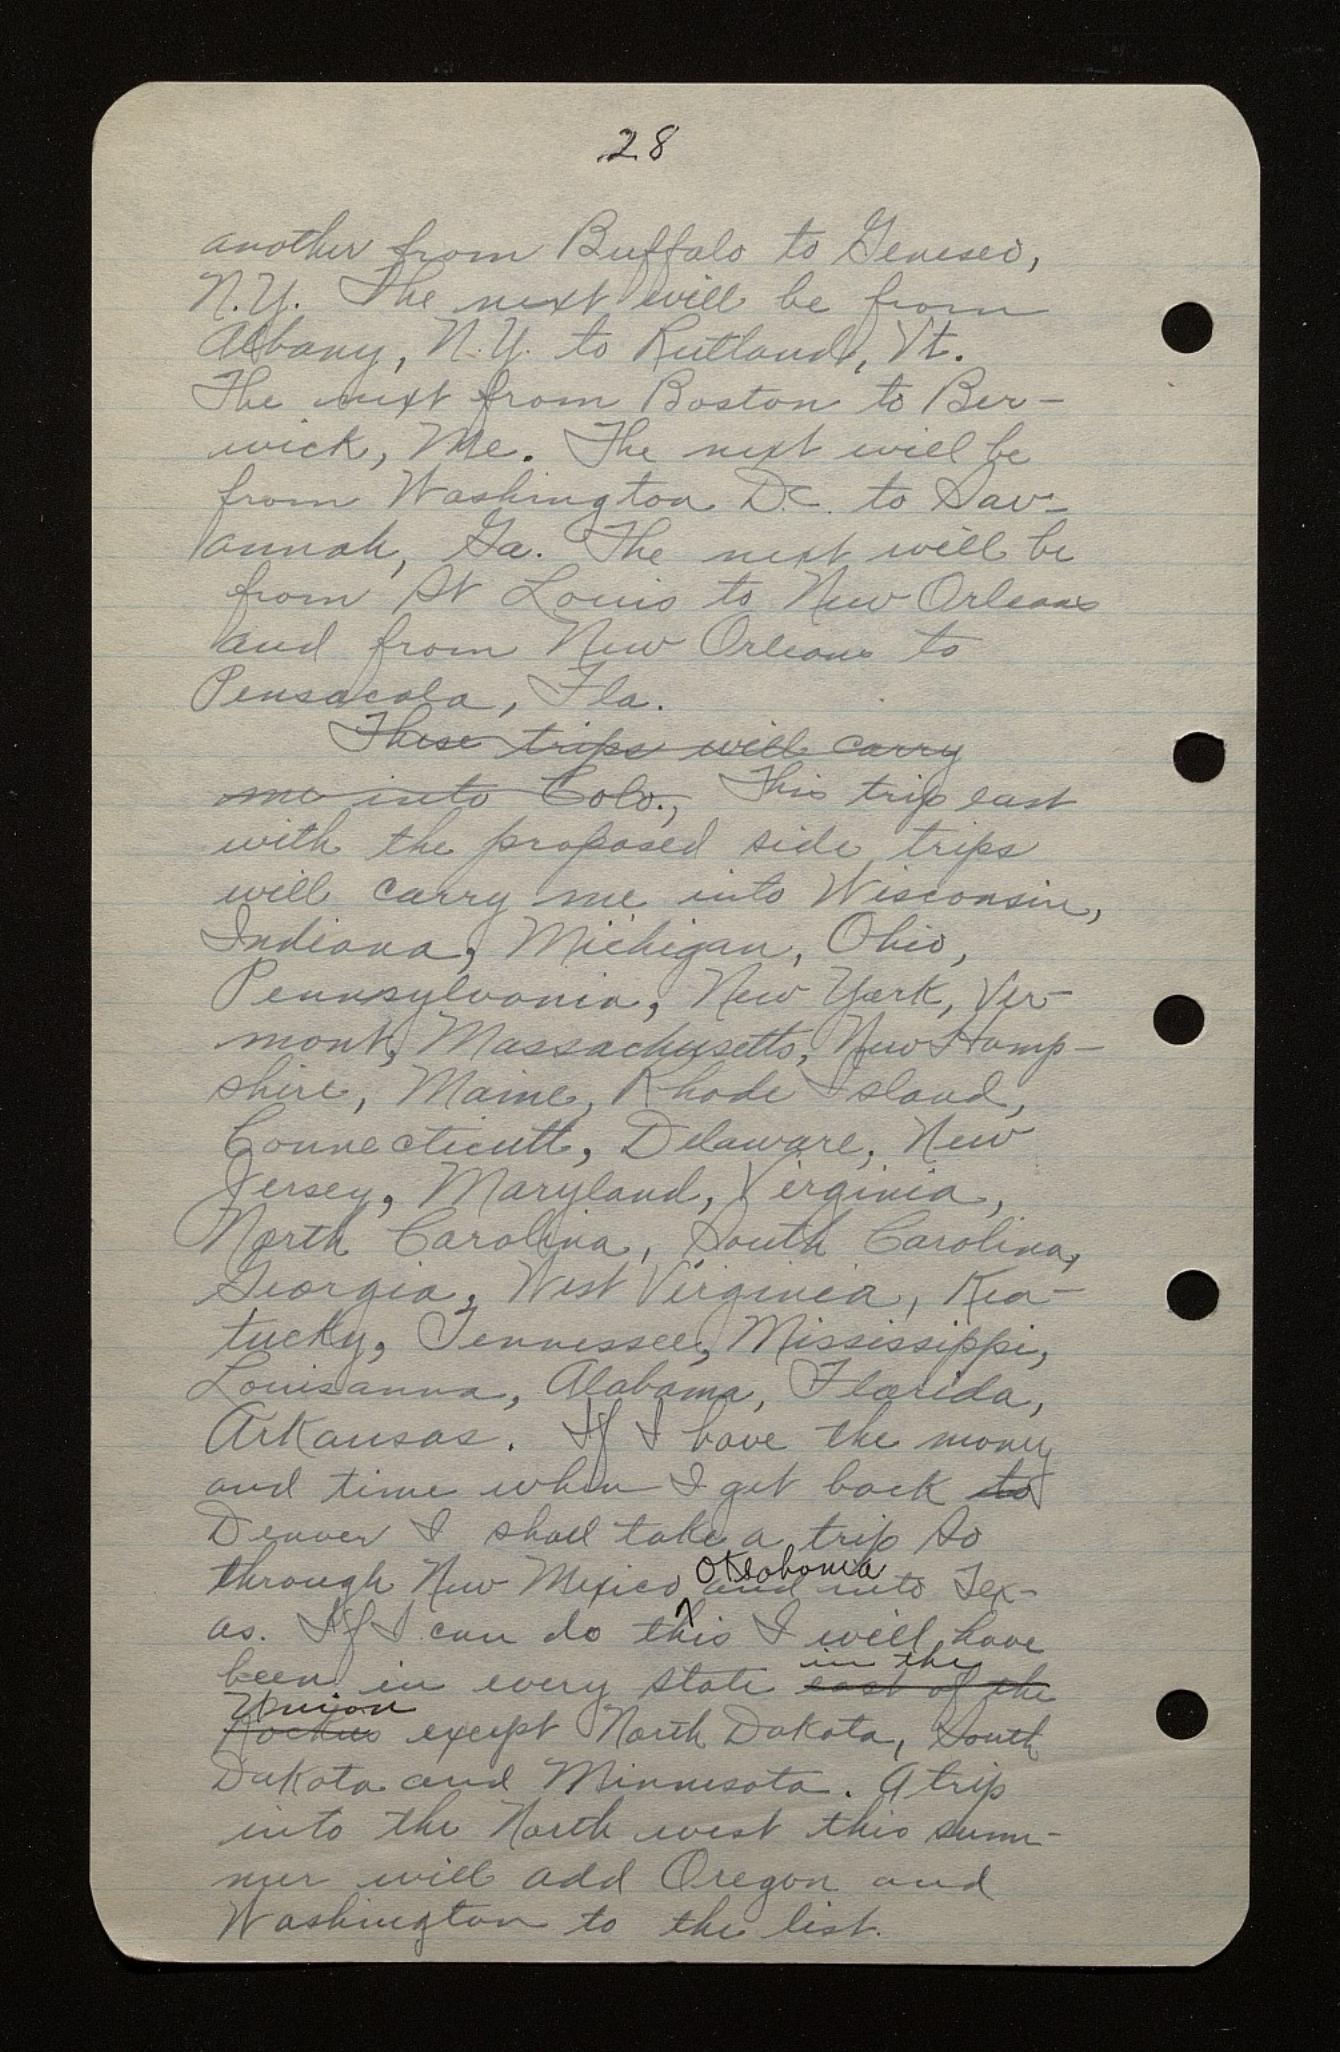 28
another from Buffalo to Geneseo,
N.Y. The next will be from
Albany, N.Y. to Rutland, Vt.
The next from Boston to Ber-
wick, Me. The next will be
from Washington D.C. to Sav-
annah, Ga. The next will be
from St Louis to New Orleans
and from New Orleans to
Pensacola, Fla.
These trips will carry
me into Colo., This trip east
with the proposed side trips
will carry me into Wisconsin,
Indiana, Michigan, Ohio,
Pennsylvania, New York, Ver-
mont, Massachusetts, New Hamp-
shire, Maine, Rhode Island,
Connecticutt, Delaware, New
Jersey, Maryland, Virginia,
North Carolina, South Carolina,
Georgia, West Virginia, Ken-
tucky, Tennessee, Mississippi,
Louisanna, Alabama, Florida,
Arkansas. If I have the money
and time when I get back to
Denver I shall take a trip so
Oklahoma
through New Mexico and into Tex-
as. If I can do this I will have
in the
been in every state east of the
Union
Rockies except North Dakota, South
Dakota and Minnesota. A trip
into the North west this sum-
mer will add Oregon and
Washington to the list.